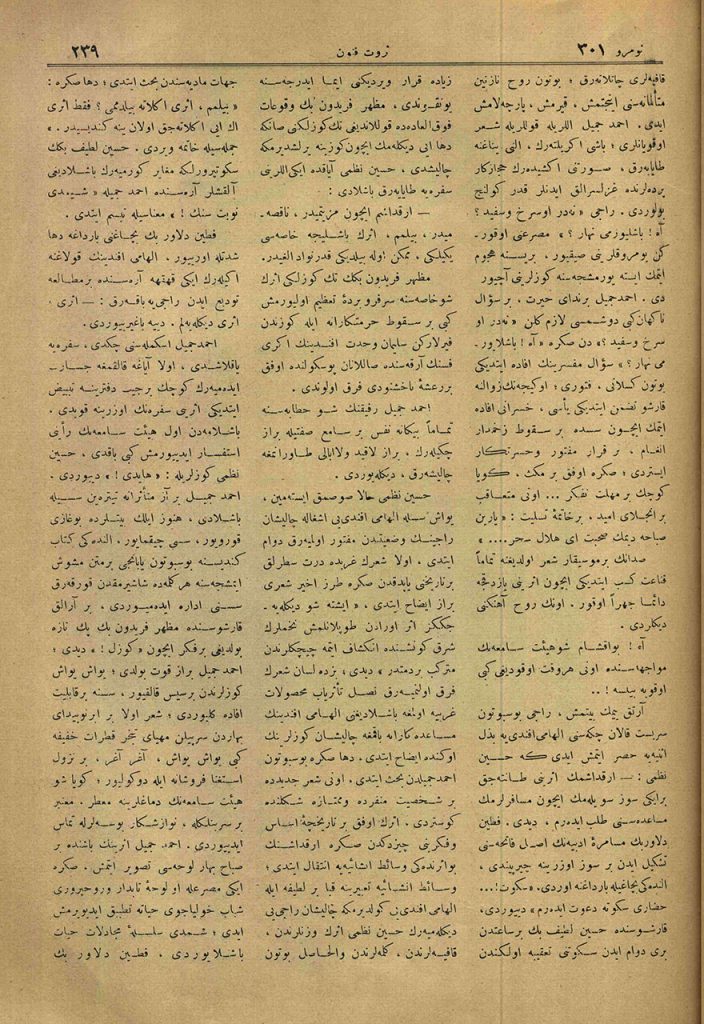 نومرو ٣٠١
ثروت فنون
٢٣٩
قافیه‌لری چاتلانه‌رق ؛ بوتون روح نازنین
متألمانه‌سنی اینجتمش ، قیرمش ، پارچه‌لامش
ایدی . احمد جمیل اللریله قوللریله شعر
اوقویانلری ؛ باشی اکریلته‌رك ، النی بناغنه
طایایه‌رق ، صورتنی اکشیده‌رك حجازکار
پرده‌لرنده غزلسرالق ایدنلر قدر کولنج
بولوردی . راجی « نه‌در اوسرخ وسفید ؟
آه ! باشلیورمی نهار ؟ » مصرعنی اوقور-
کن یومروقلرینی صیقیور ، بریسنه هجوم
ایتمك ایسته یورمشجه‌سنه کوزلرینی آچیور
دی . احمد جمیل برندای حیرت ، بر سؤال
ناکهان کبی دوشمسی لازم کلن « نه‌در او
سرخ وسفید ؟ » دن صکره « آه ! باشلایور-
می نهار ؟ » سؤال مفسرینك افاده ایتدیکی
بوتون کسلانی ، فتوری ؛ اوکیجه‌نك زوالنه
قارشو تضمن ایتدیکی یأسی ، خسرانی افاده
ایتمك ایچون سسده بر سقوط زخمدار
انغام ، بر قرار مفتور وحسرتکار
ایستردی ؛ صکره اوفق بر مکث . کویا
کوچك بر مهلت تفکر ... اونی متعاقب
بر انجلای امید ، بر خاتمهٔ تسلیت : « یارین
صباحه دیمك صحبت ای هلال سحر .... »
صدانك بر موسیقار شعر اولدیغنه تماماً
قناعت کسب ایتدیکی ایچون اثرینی یازدقجه
دائما جهراً اوقور . اونك روح آهنکنی
دیکلردی .
آه ! بواقشام شو هیئت سامعه‌نك
مواجهه‌سنده اونی هروقت اوقودیغی کبی
اوقویه بیلسه ! ..
آرتق یمك بیتمش ، راجی بوسبوتون
سربست قالان چکه‌سنی الهامی افندی‌یه بذل
اثنیه‌یه حصر ایتمش ایدی که حسین
نظمی : — ارقداشمك اثرینی طانته‌جق
برایکی سوز سویله‌مك ایچون مسافرلرمك
مساعده‌سنی طلب ایده‌رم ، دیدی . فطین
دلاوربك مسامرهٔ ادبیه‌نك اصل فاتحه‌سنی
تشکیل ایدن بر سوز اوزرینه جیرپیندی ،
النده‌کی بچاغیله بارداغنه اوردی . « سکوت ! ...
حضاری سکوته دعوت ایده‌رم » دییوردی ،
قارشوسنده حسین لطیف بك برساعتدن
بری دوام ایدن سکوتنی تعقیبه اولکندن
زیاده قرار ویردیکنی ایما ایدرجه‌سنه
یوتقوندی ، مظهر فریدون بك وقوعات
فوق العاده‌ده قوللاندیغی تك کوزلکنی صانکه
دها ایی دیکله‌مك ایچون کوزینه یرلشدیرمکه
چالیشدی ، حسین نظمی آیاقده ایکی اللرینی
سفره‌یه طایایه‌رق باشلادی :
— ارقداشم ایچون مزیتمیدر ، ناقصه-
میدر ، بیلمم ، اثرك باشلیجه خاصه‌سی
یکیلکی ، ممکن اوله بیلدیکی قدر نواد الغیدر .
مظهر فریدون بك تك کوزلکی اثرك
شو خاصه‌سنه سرفرو بردهٔ تعظیم اولیورمش
کبی بر سقوط حرمتکارانه ایله کوزندن
فیرلارکن سلیمان وحدت افندینك اکری
فسنك آرقه‌سنده صاللانان پوسکولنده اوفق
بر رعشهٔ ناخشنودی فرق اولوندی .
احمد جمیل رفیقنك شو خطابه‌سنه
تماماً بیکانه نفس بر سامع صفتیله براز
چکیله‌رك ، براز لاقید ولاابالی طاورانمغه
چالیشه‌رق ، دیکله‌یوردی .
حسین نظمی حالا صوصمق ایسته‌مین ،
یواش سسله الهامی افندی‌یی اشغاله چالیشان
راجینك وضعیتندن مفتور اولمیه‌رق دوام
ایتدی ، اولا شعرك غربده درت سطرلق
بر تاریخنی یاپدقدن صکره طرز اخیر شعری
براز ایضاح ایتدی ، « ایشته شو دیکله‌یه-
جککز اثر اورادن طوپلانلمش تخملرك
شرق کونشنده انکشاف ایتمه چیچکلرندن
مترکب بر دمتدر » دیدی ؛ بزده لسان شعرك
فرق اولنمیه‌رق نصل تأثریاب محصولات
غربیه اولمغه باشلادیغنی الهامی افندینك
مساعده‌کارانه باقمغه چالیشان کوزلرینك
اوکنده ایضاح ایتدی . دها صکره بوسبوتون
احمد جمیلدن بحث ایتدی . اونی شعر جدیدده
بر شخصیت منفرده وممتازه شکلنده
کوستردی . اثرك اوفق بر تاریخچهٔ اساس
وفکرینی چیزدکدن صکره ارقداشنك
بواثرنده‌کی وسائط انشائیه‌یه انتقال ایتدی ؛
وسائط انشائیه تعبیرینه قبا بر لطیفه ایله
الهامی افندی‌یی کولدیرمکه چالیشان راجی‌یی
دیکله‌میه‌رك حسین نظمی اثرك وزنلرندن ،
قافیه‌لرندن ، کلمه‌لرندن والحاصل بوتون
جهات مادیه‌سندن بحث ایتدی ؛ دها صکره :
« بیلمم ، اثری اکلاته بیلدممی ؟ فقط اثری
اك ایی اکلاته‌جق اولان ینه کندیسیدر . »
جمله‌سیله خاتمه ویردی . حسین لطیف بكك
سکوتپرورلکه مغایر کورمیه‌رك باشلادیغی
آلقشلر آره‌سنده احمد جمیله « شیمدی
نوبت سنك ! » معناسیله تبسم ایتدی .
فطین دلاور بك بچاغنی بارداغه دها
شدتله اورییور . الهامی افندینك قولاغنه
اکیله‌رك ایکی قهقهه آره‌سنده بر مطالعه
تودیع ایدن راجی‌یه باقه‌رق : — اثری ،
اثری دیکله‌یه‌لم ، دییه باغیریوردی .
احمد جمیل اسکمله‌سنی چکدی ، سفره‌یه
یاقلاشدی ، اولا آیاغه قالقمغه جسارت
ایده‌میه‌رك کوچك بر جیب دفترینه تبییض
ایتدیکی اثرینی سفره‌نك اوزرینه قویدی .
باشلامه‌دن اول هیئت سامعه‌نك رأینی
استفسار ایدییورمش کبی باقدی ، حسین
نظمی کوزلریله : « هایدی ! » دییوردی .
احمد جمیل بر آز متأثرانه تیتره‌ین سسیله
باشلادی ، هنوز ایلك بیتلرده بوغازی
قورویور ، سسی چیقمایور . النده‌کی کتاب
کندیسنه بوسبوتون یابانجی بر متن مشوش
ایمشجه‌سنه هر کلمه‌ده شاشیرمقدن قورقه‌رق
سسنی اداره ایده‌میوردی ، بر آرالق
قارشوسنده مظهر فریدون بك پك تازه
بولدیغی بر فکر ایچون « کوزل ! » دیدی ؛
احمد جمیل براز قوت بولدی ؛ یواش یواش
کوزلرندن بر سیس قالقیور ، سسنه بر قابلیت
افاده کلیوردی ؛ شعر اولا بر ابر نوپیدای
بهاردن سرپیلن مهیای تبخر قطرات خفیفه
کبی یواش یواش ، آغر آغر ، بر نزول
استغنا فروشانه ایله دوکولیور ؛ کویا شو
هیئت سامعه‌نك دماغلرینه معطر ، معنبر
بر سرینلکله ، نوازشکار بوسه‌لرله تماس
ایدییوردی . احمد جمیل اثرینك باشنده بر
صباح بهار لوحه‌سی تصویر ایتمش . صکره
ایکی مصرعله او لوحهٔ تابدار وروحپروری
شباب خولیاجوی حیاته تطبیق ایدیویرمش
ایدی ؛ شمدی سلسلهٔ مجادلات حیات
باشلایوردی . فطین دلاور بك